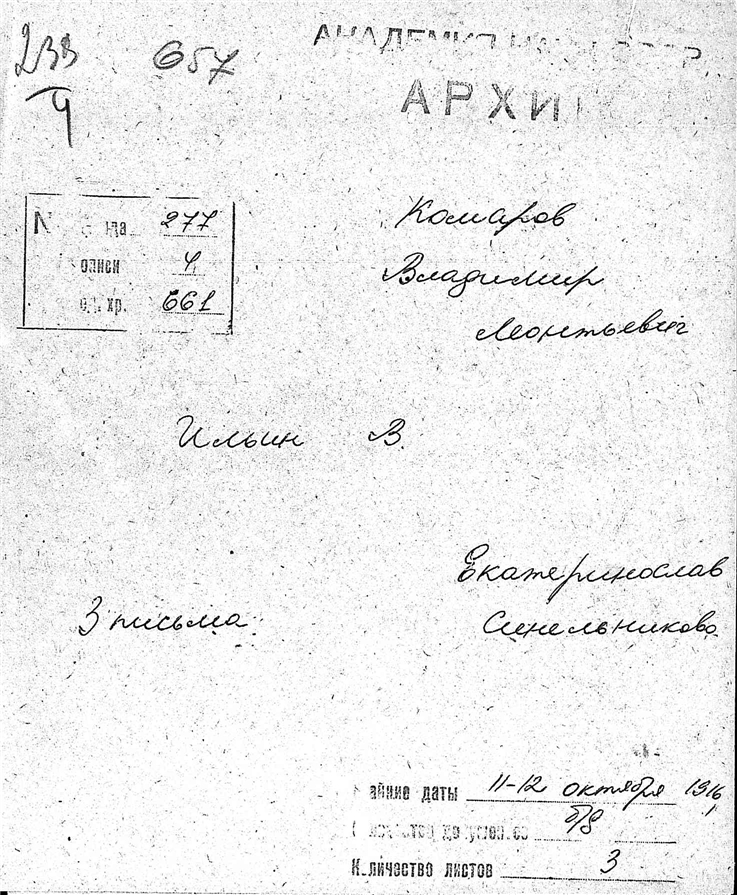 233 657
4
АКАДЕМИЯ НАУК СССР
АРХИВ
№ фонда 277
описи 4
ед. хр. 661
Комаров
Владимир
Леонтьевич
Ильин В.
Екатеринослав
3 письма
Синельниково
Крайние даты 11-12 октября 1916,
б/д
Количество листов 3